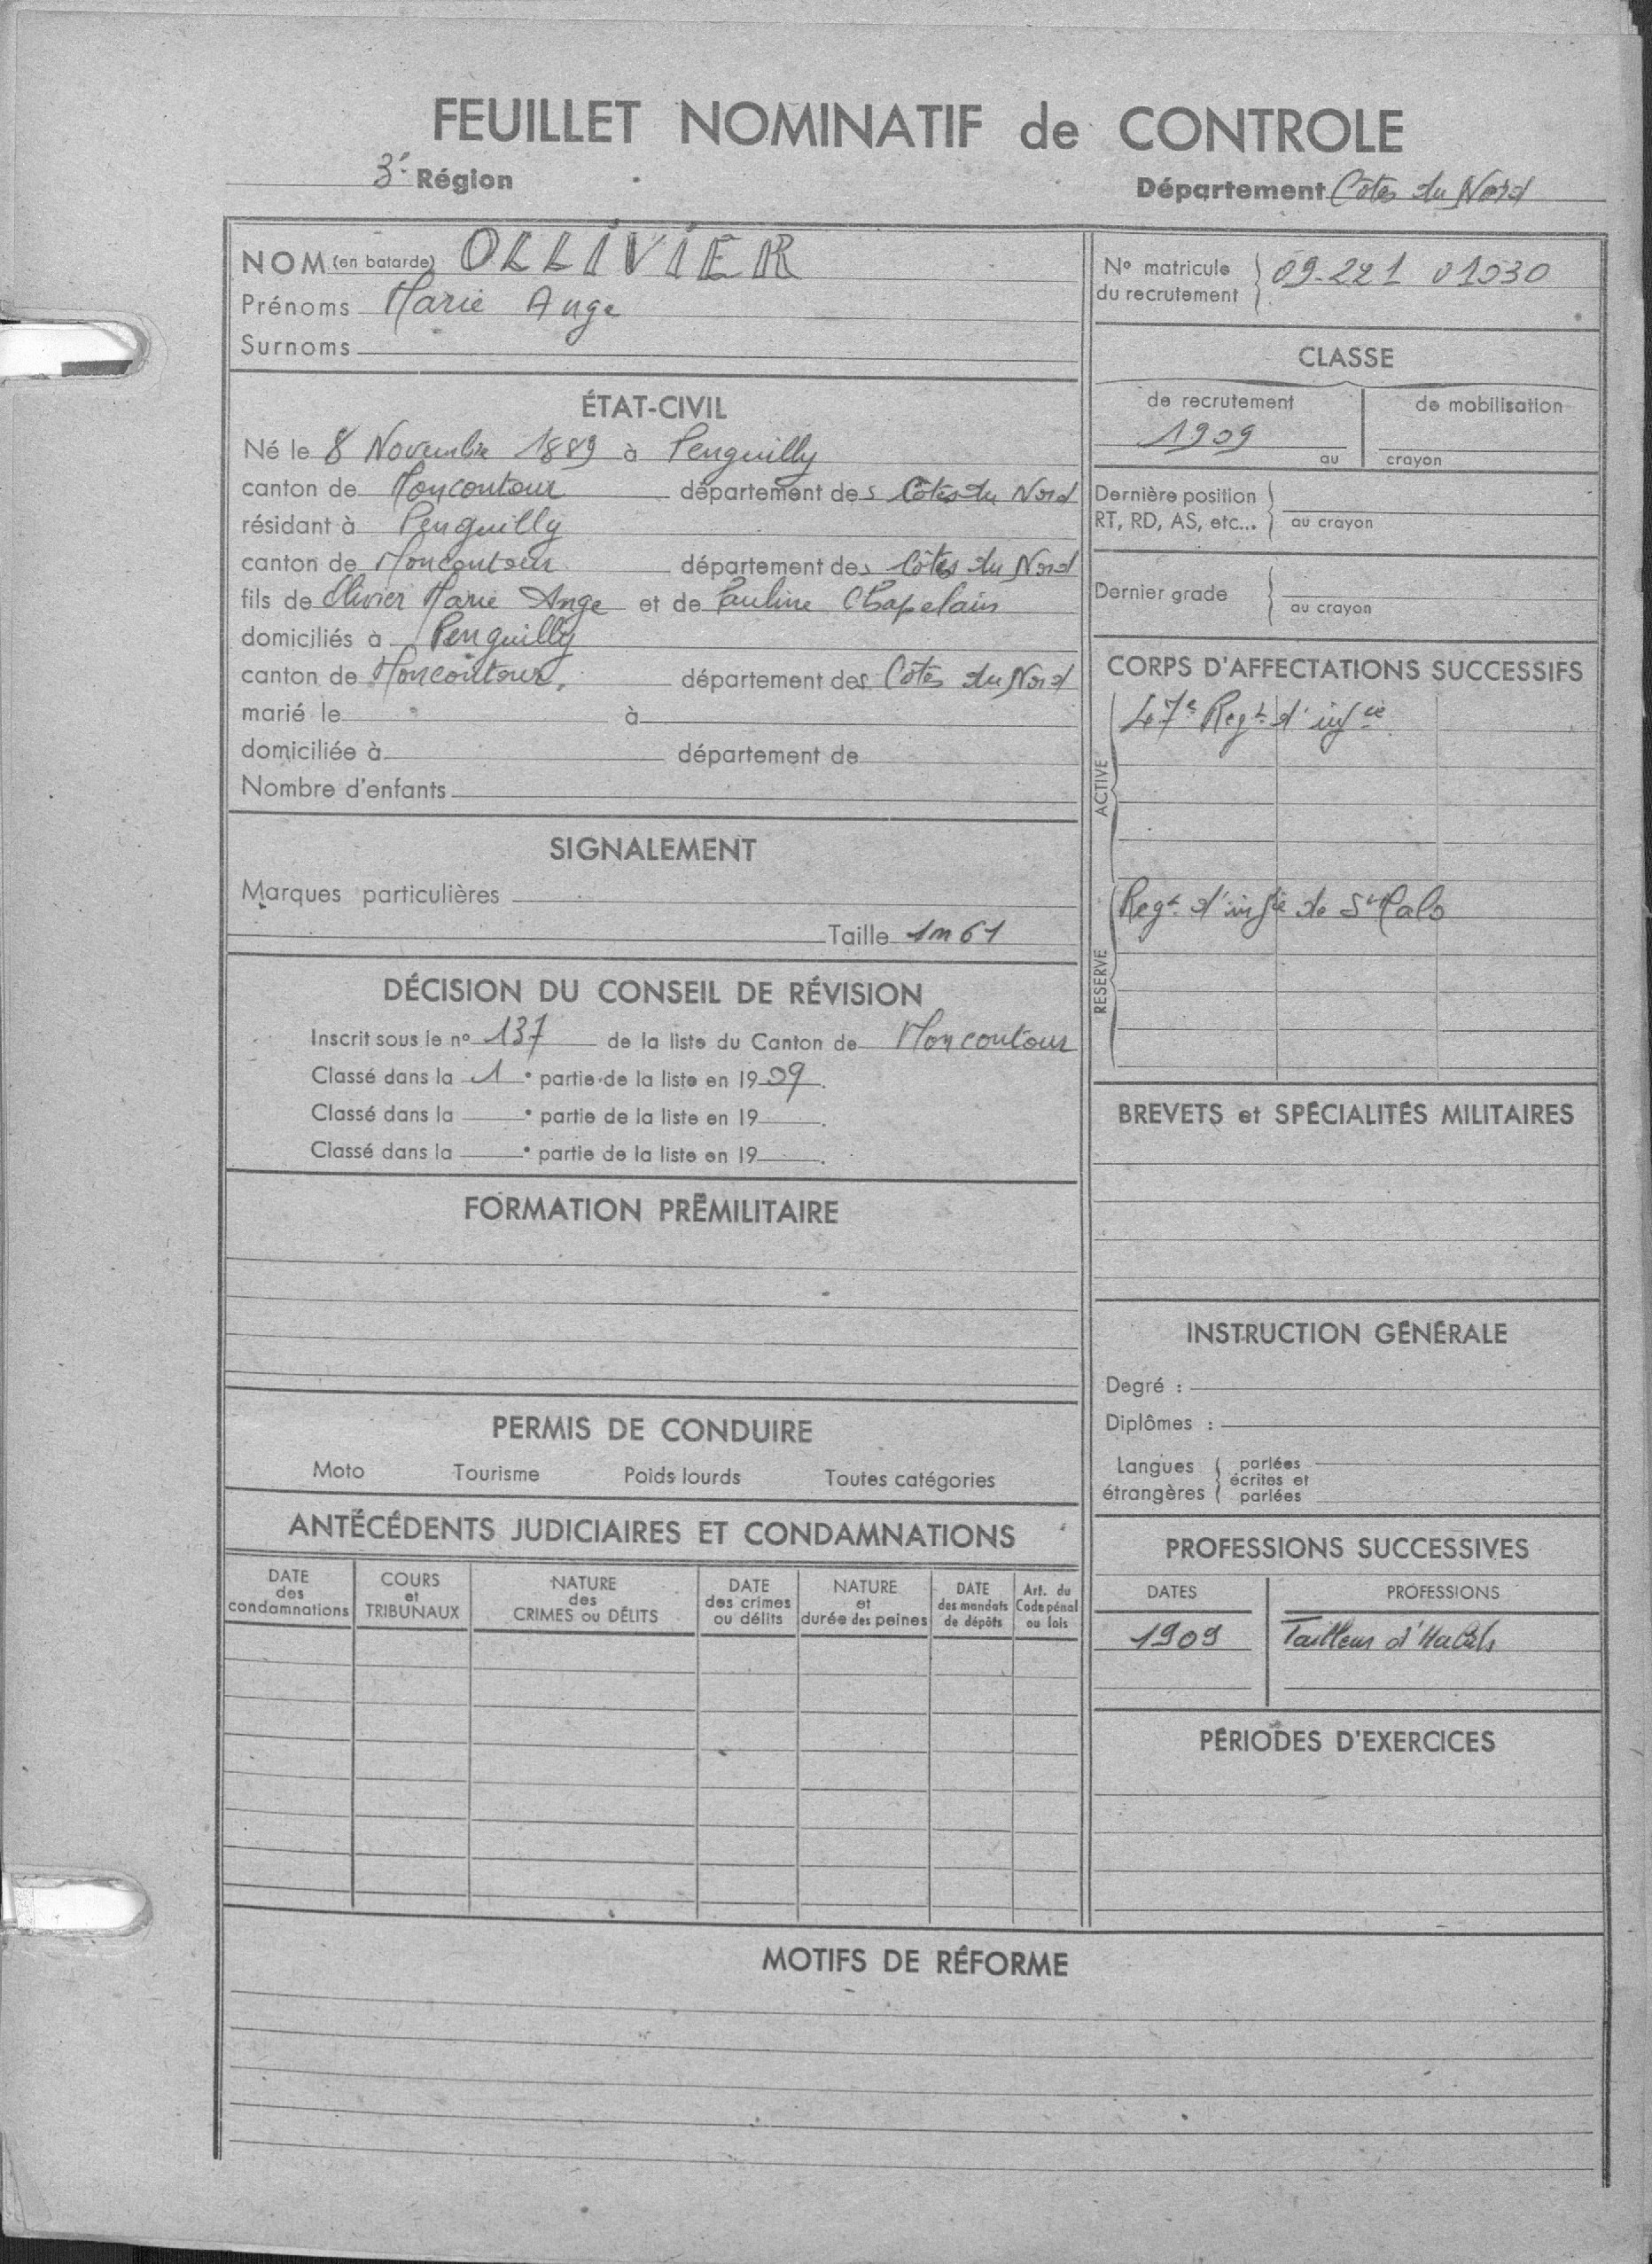 FEUILLET NOMINATIF de CONTROLE
3e Région
Département Côtes du Nord
NOM (en batarde) OLLIVIER
Prénoms Marie Ange
Surnoms
ÉTAT-CIVIL
Né le 8 Novembre 1889 à Penguilly
canton de Moncontour département des Côtes du Nord
résidant à Penguilly
canton de Moncontour département des Côtes du Nord
fils de Olivier Marie Ange et de Pauline Chapelain
domiciliés à Penguilly
canton de Moncontour. département des Côtes du Nord
marié le à
domiciliée à département de
Nombre d'enfants
SIGNALEMENT
Marques particulières
Taille 1m61
DÉCISION DU CONSEIL DE RÉVISION
Inscrit sous le nº 137 de la liste du Canton de Moncontour
Classé dans la 1e partie de la liste en 1909.
Classé dans la e partie de la liste en 19 .
Classé dans la e partie de la liste en 19 .
FORMATION PRÉMILITAIRE
PERMIS DE CONDUIRE
Moto Tourisme Poids lourds Toutes catégories
ANTÉCÉDENTS JUDICIAIRES ET CONDAMNATIONS
DATE des condamnations
COURS et TRIBUNAUX
NATURE des CRIMES ou DÉLITS
DATE des crimes ou délits
NATURE et durée des peines
DATE des mandats de dépôts
Art. du Code pénal ou lois
Nº matricule du recrutement 09-221 01030
CLASSE
de recrutement de mobilisation
1909
au crayon
Dernière position
RT, RD, AS, etc... au crayon
Dernier grade au crayon
CORPS D'AFFECTATIONS SUCCESSIFS
ACTIVE
47e Regt d'infie
RESERVE
Regt d'infie de St Malo
BREVETS et SPÉCIALITÉS MILITAIRES
INSTRUCTION GÉNÉRALE
Degré :
Diplômes :
Langues étrangères
parlées
écrites et parlées
PROFESSIONS SUCCESSIVES
DATES PROFESSIONS
1909 Tailleur d'Habits
PÉRIODES D'EXERCICES
MOTIFS DE RÉFORME